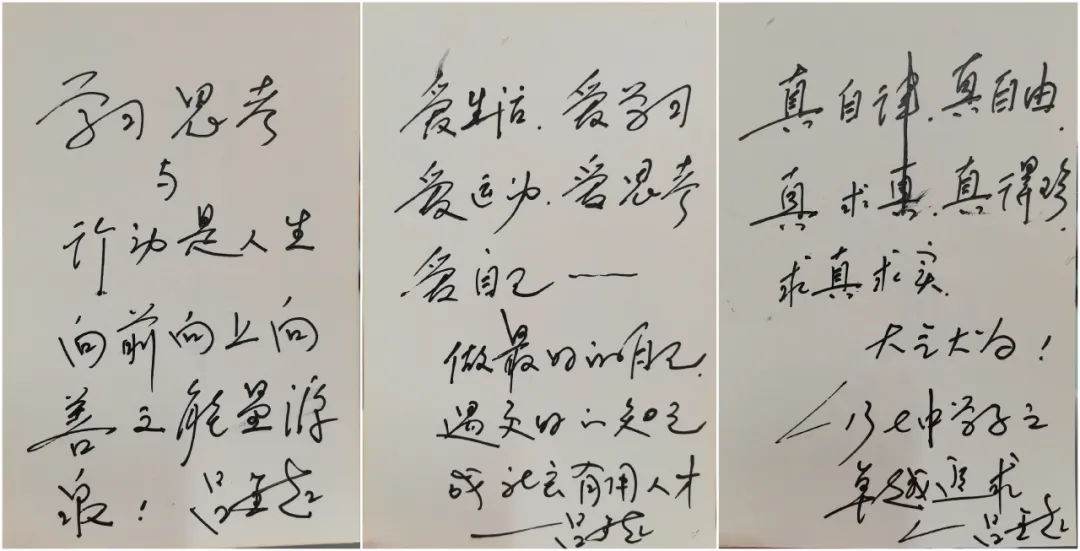 学习思考
与
行动是人生
向前向上向
善之能量源
泉！
爱生活、爱学习
爱运动、爱思考
爱自己——
做最好的自己、
遇更好的知己
成社会有用人才
真自律、真自由、
真求真、真得珍、
求真求实
大大为！
七中学子之
卓越追求